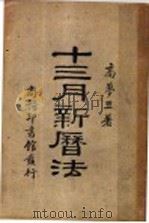 高夢旦著
十三月新曆法
商務印書館發行